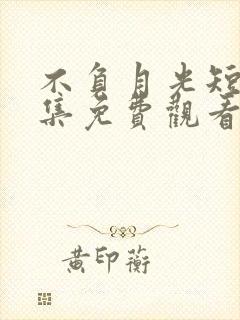 不負月光短
集免費觀看
黃印蘅